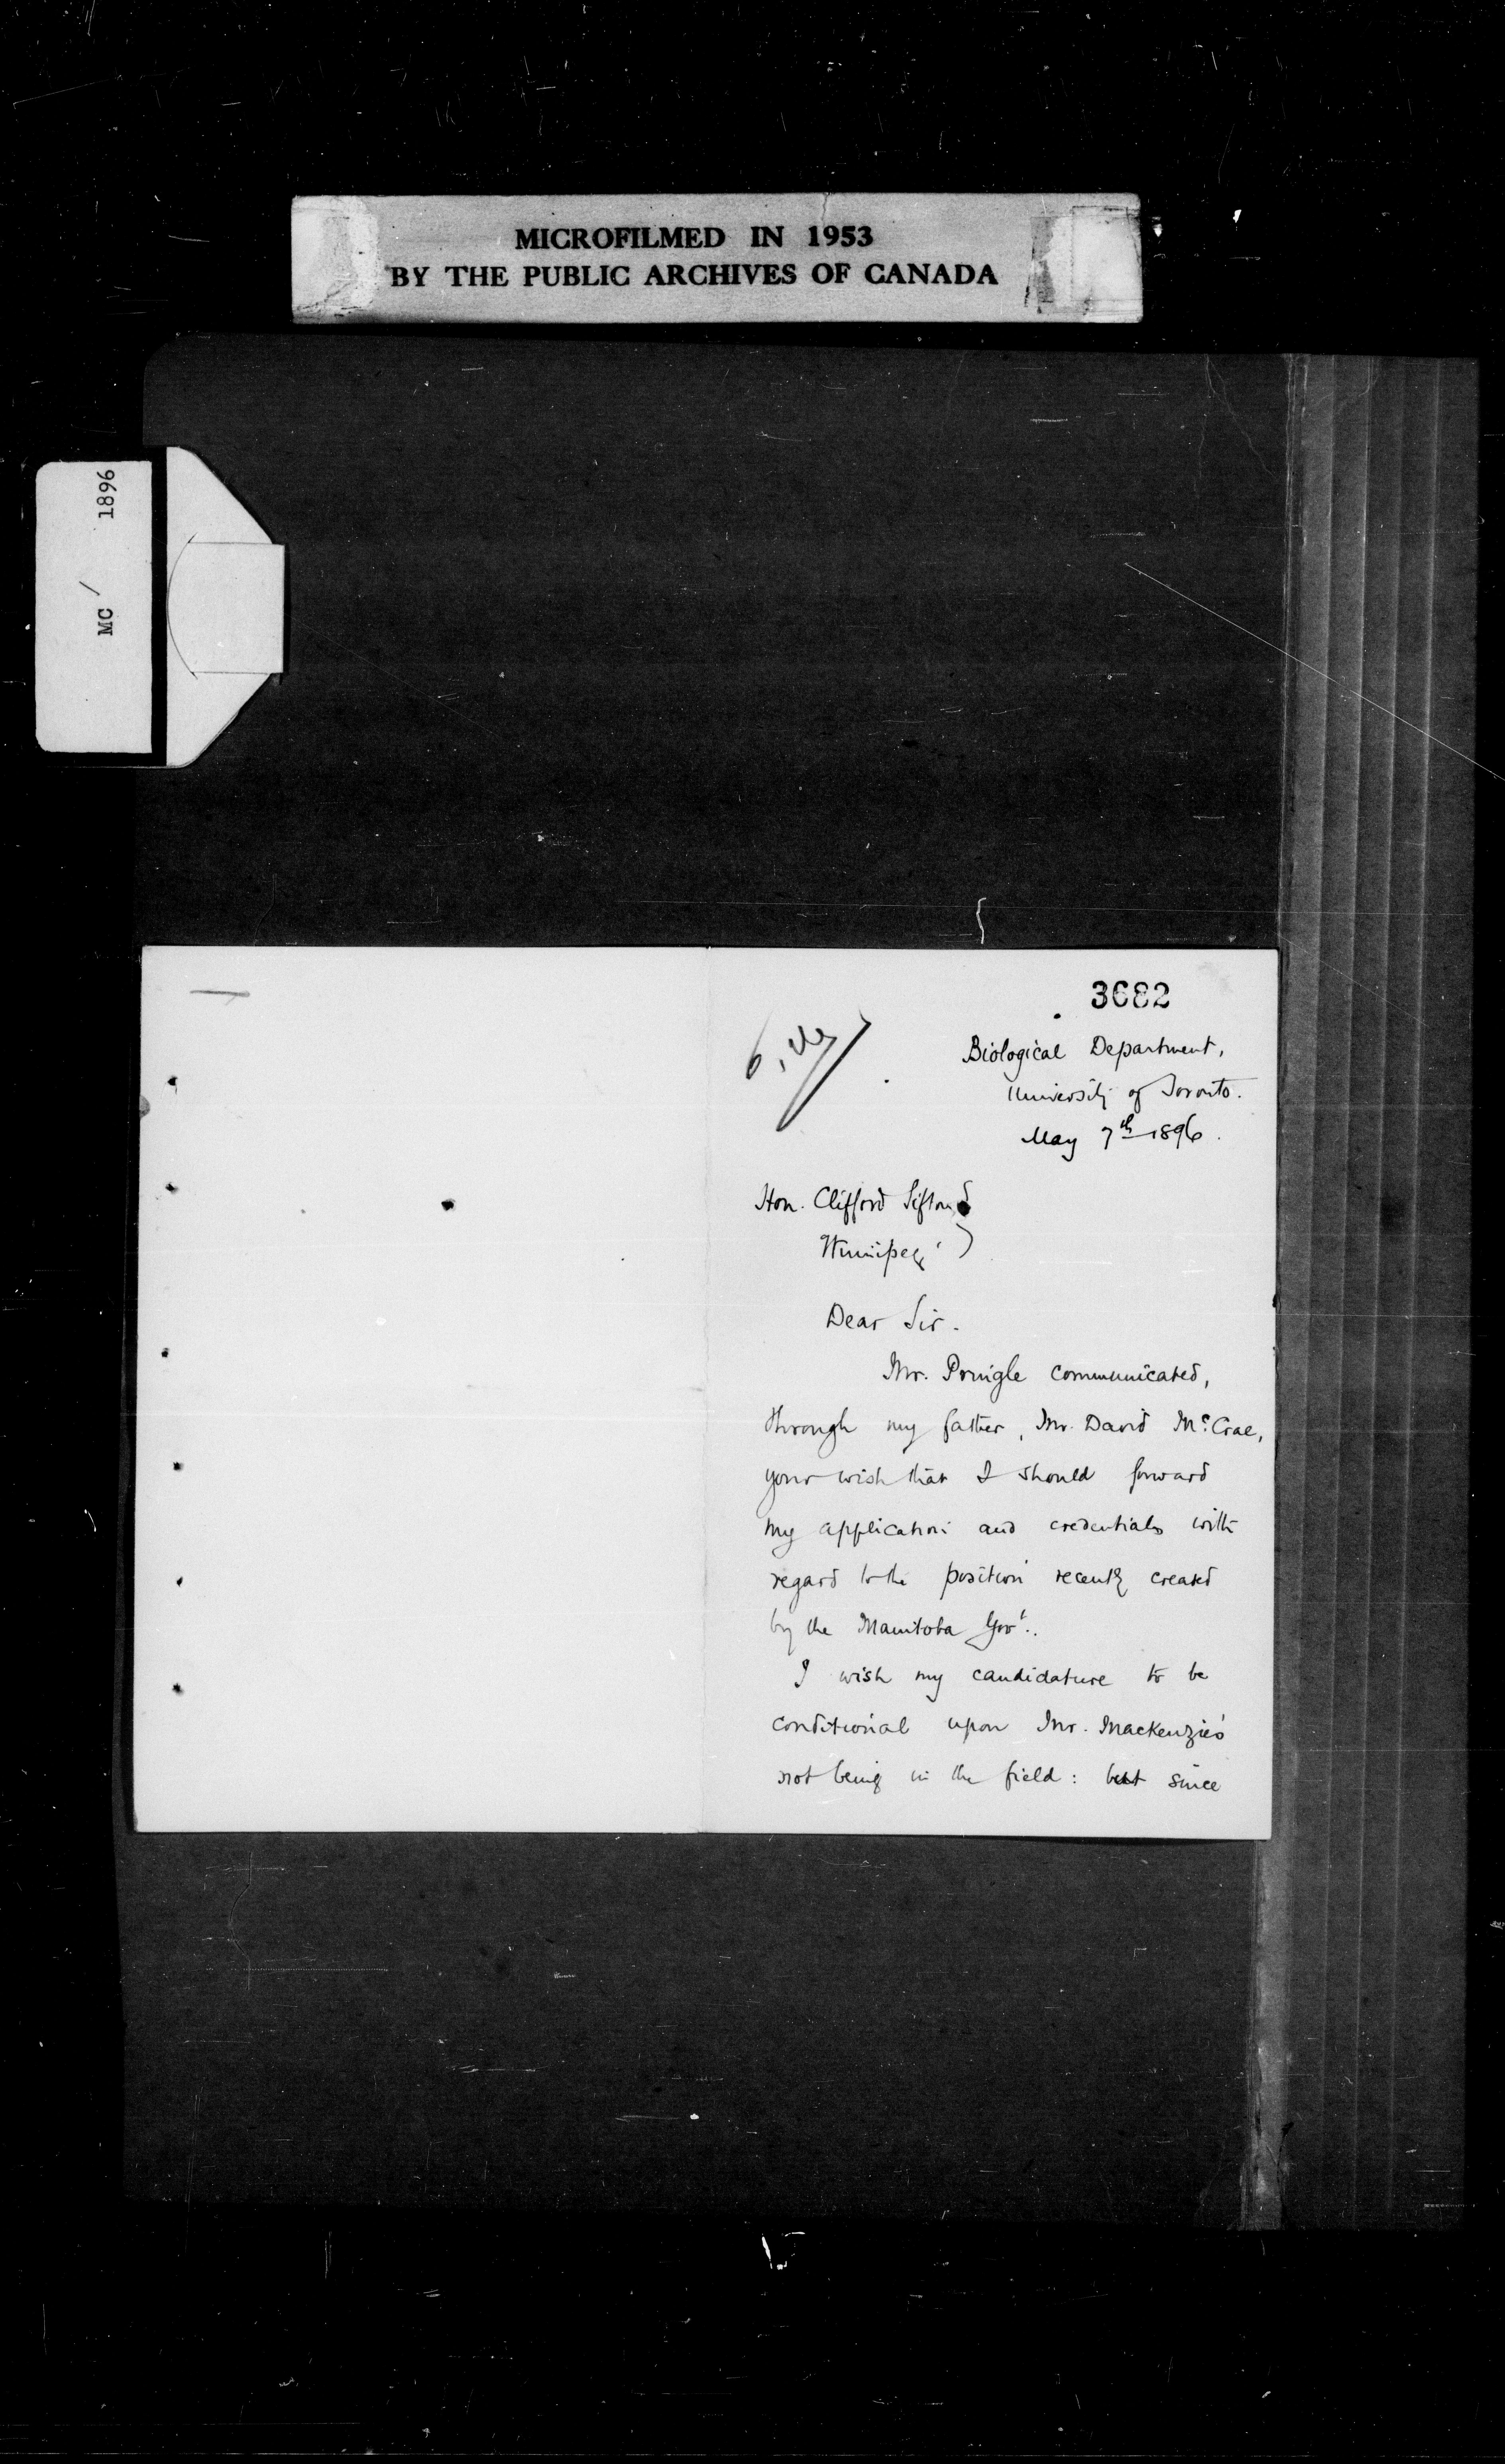 MICROFILMED IN 1953
BY THE PUBLIC ARCHIVES OF CANADA
MC / 1896
3682
Biological Department,
University of Toronto.
May 7th 1896.
Hon. Clifford Sifton
Winnipeg
Dear Sir.
Mr. Pringle communicated,
through my father, Mr. David McCrae,
your wish that I should forward
my application and credentials with
regard to the position recently created
by the Manitoba Govt..
I wish my candidature to be
conditional upon Mr. Mackenzie's
not being in the field: but since